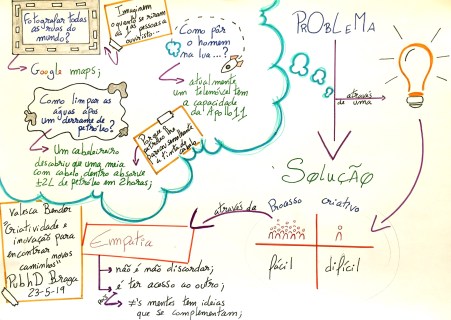 Fotografar todas
as ruas do
mundo?
Google maps;
Imaginem
o quanto se riram
as 1as pessoas a
ouvir isto...
Como pôr
o homem
na lua...?
atualmente
um telemóvel tem
a capacidade
da Apollo 11
Como limpar as
águas após
um derrame de
petróleo?
Um cabeleireiro
descobriu que uma meia
com cabelo dentro absorve
±2L de petróleo em 2 horas;
Porque o
petróleo
semelhante
à tinta de
cabelo
PROBLEMA
através
de uma
SOLUÇÃO
Processo criativo
fácil
difícil
através da
Empatia
não é não discordar;
é ter acesso ao outro;
≠'s mentes têm ideias
que se complementam;
Valesca Bender
"Criatividade e
inovação para
encontrar novos
caminhos"
PubhD Braga
23-5-19